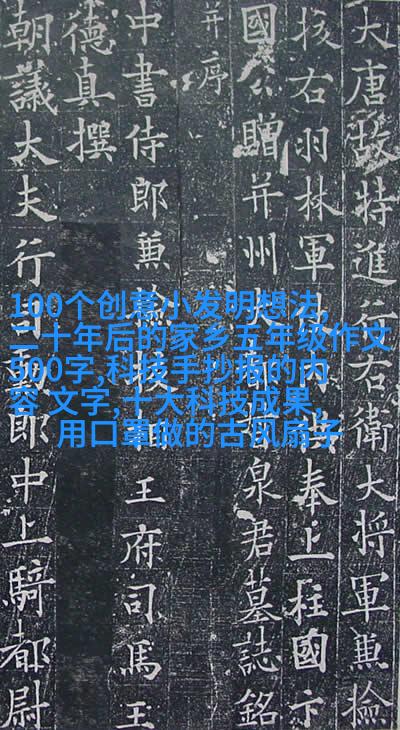 大唐故特進行右衛大將軍兼檢
挍右羽林軍仗內供奉上柱國卞
國公贈并州大都督泉君墓誌銘
并序
中書侍郎兼檢挍相王府司馬王
德真撰
朝議大夫行司勳郎中上騎都尉
100个创意小发明想法,
二十年后的家乡五年级作文
500字,科技手抄报的内
容 文字,十大科技成果,
用口罩做的古风扇子